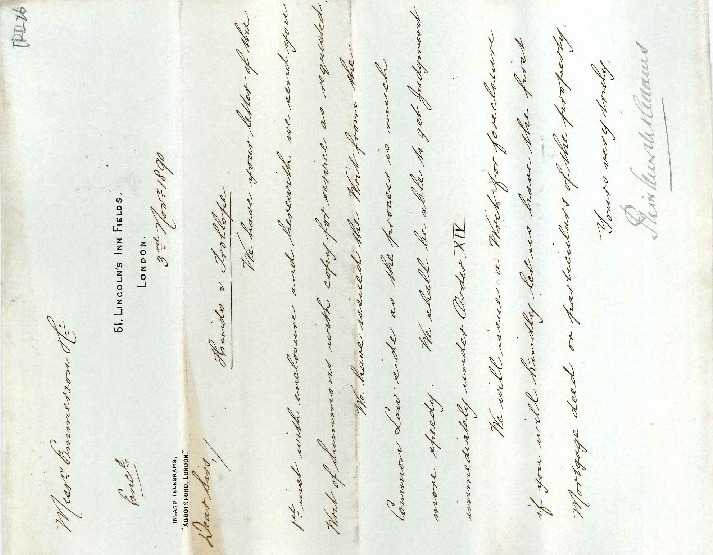 61, LINCOLN'S INN FIELDS,
LONDON.
3rd Novr 1890
INLAND TELEGRAMS,
"ABBOTSFORD, LONDON"
Dear Sirs/
v Trollope
We have your letter of the
1st inst with enclosure and herewith we send you
Writ of Summons with copy for service as requested.
We have issued the Writ from the
Common Law side as the process is much
more speedy. We shall be able to get judgment
immediately under Order XIV
We will issue a Writ for foreclosure
if you will kindly let us have the first
Mortgage deed or particulars of the property.
Yours very truly,
Messrs &Co: